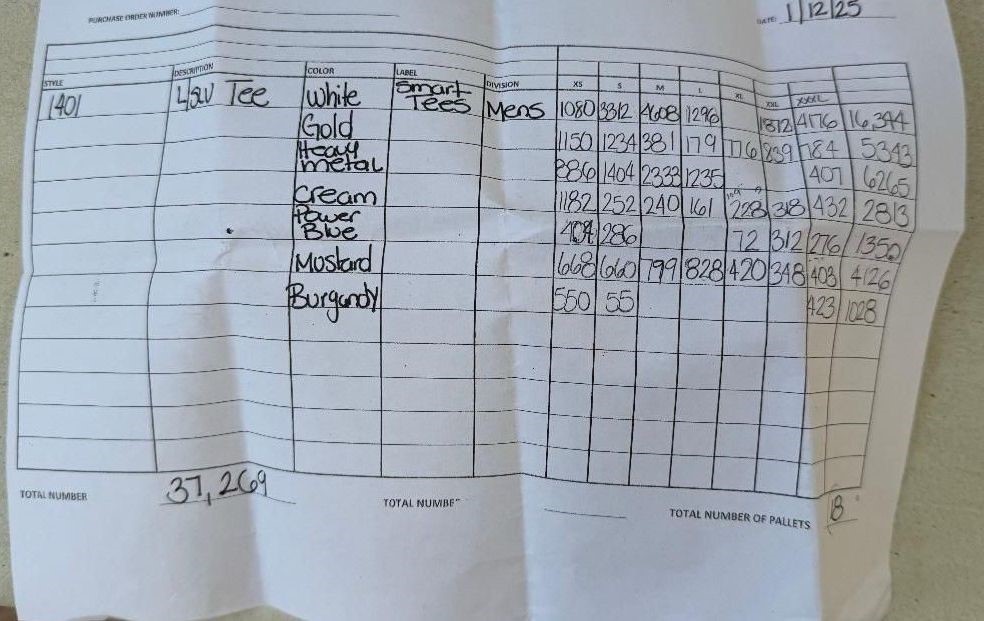 PURCHASE ORDER NUMBER:
DATE: 1/12/25
STYLE DESCRIPTION COLOR LABEL DIVISION XS S M L XL XXL XXXL
1401 L/SLV Tee White Smart Tees Mens 1080 3312 4608 1296 1872 4176 16,344
Gold 1150 1234 381 179 776 839 784 5343
Heavy metal 886 1404 2333 1235 407 6265
Cream 1182 252 240 161 228 318 432 2813
Power Blue 404 286 72 312 276 1350
Mustard 668 660 799 828 420 348 403 4126
Burgandy 550 55 423 1028
TOTAL NUMBER 37,269 TOTAL NUMBE TOTAL NUMBER OF PALLETS 8